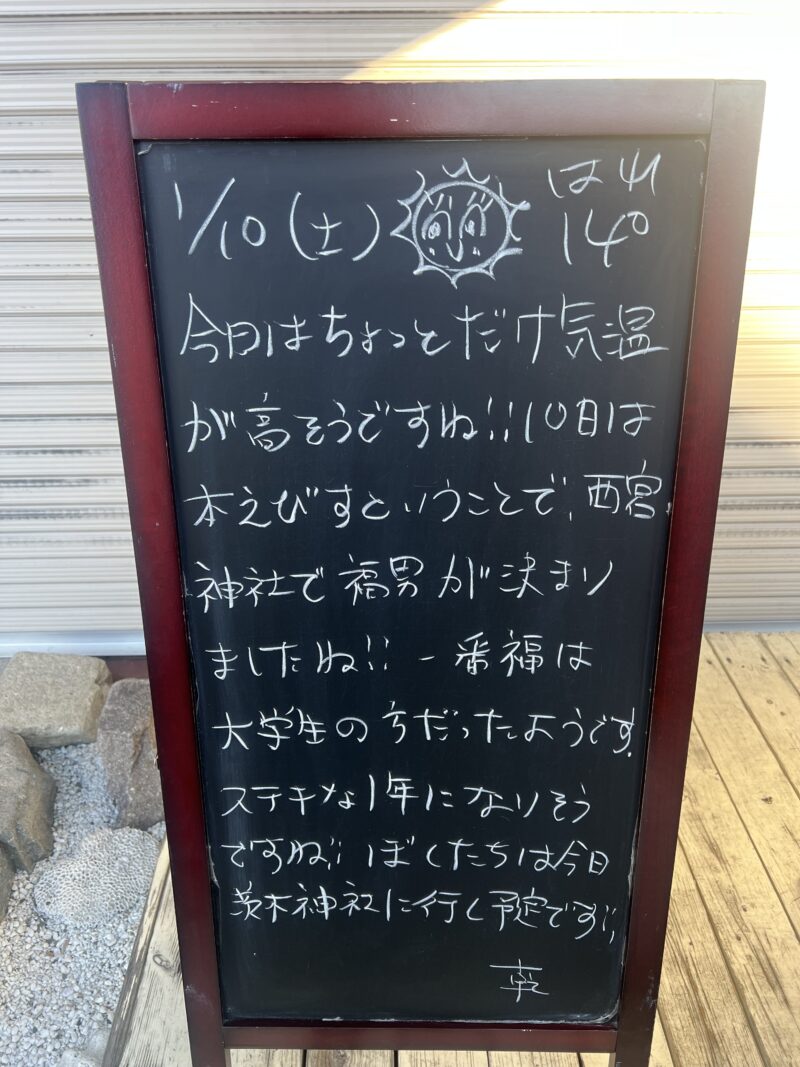 1/10(土) はれ
14°
今日はちょっとだけ気温
が高そうですね!!10日は
本えびすということで、西宮
神社で福男が決まり
ましたね!!一番福は
大学生の方だったようです。
ステキな1年になりそう
ですね!!ぼくたちは今日
茨木神社に行く予定です!!
乾